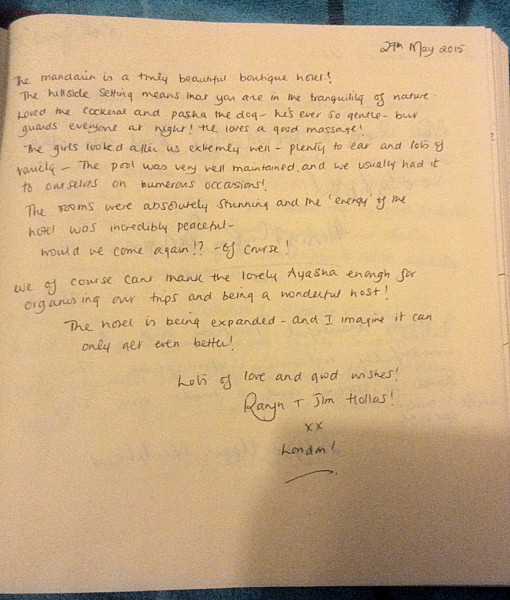 27th May 2015
The mandarin is a truly beautiful boutique hotel!
The hillside setting means that you are in the tranquility of nature.
Loved the cockeral and pasha the dog - he's ever so gentle - but
guards everyone at night! He loves a good massage!
The girls looked after us extremly well - plenty to eat and lots of
variety - The pool was very well maintained, and we usually had it
to ourselves on numerous occassions!
The rooms were absolutely stunning and the 'energy' of the
hotel was incredibly peaceful -
would we come again!? - Of course!
We of course cant thank the lovely Ayasha enough for
organising our trips and being a wonderful host!
The hotel is being expanded - and I imagine it can
only get even better!
Lots of love and good wishes!
+ Jim Hollas!
xx
London!